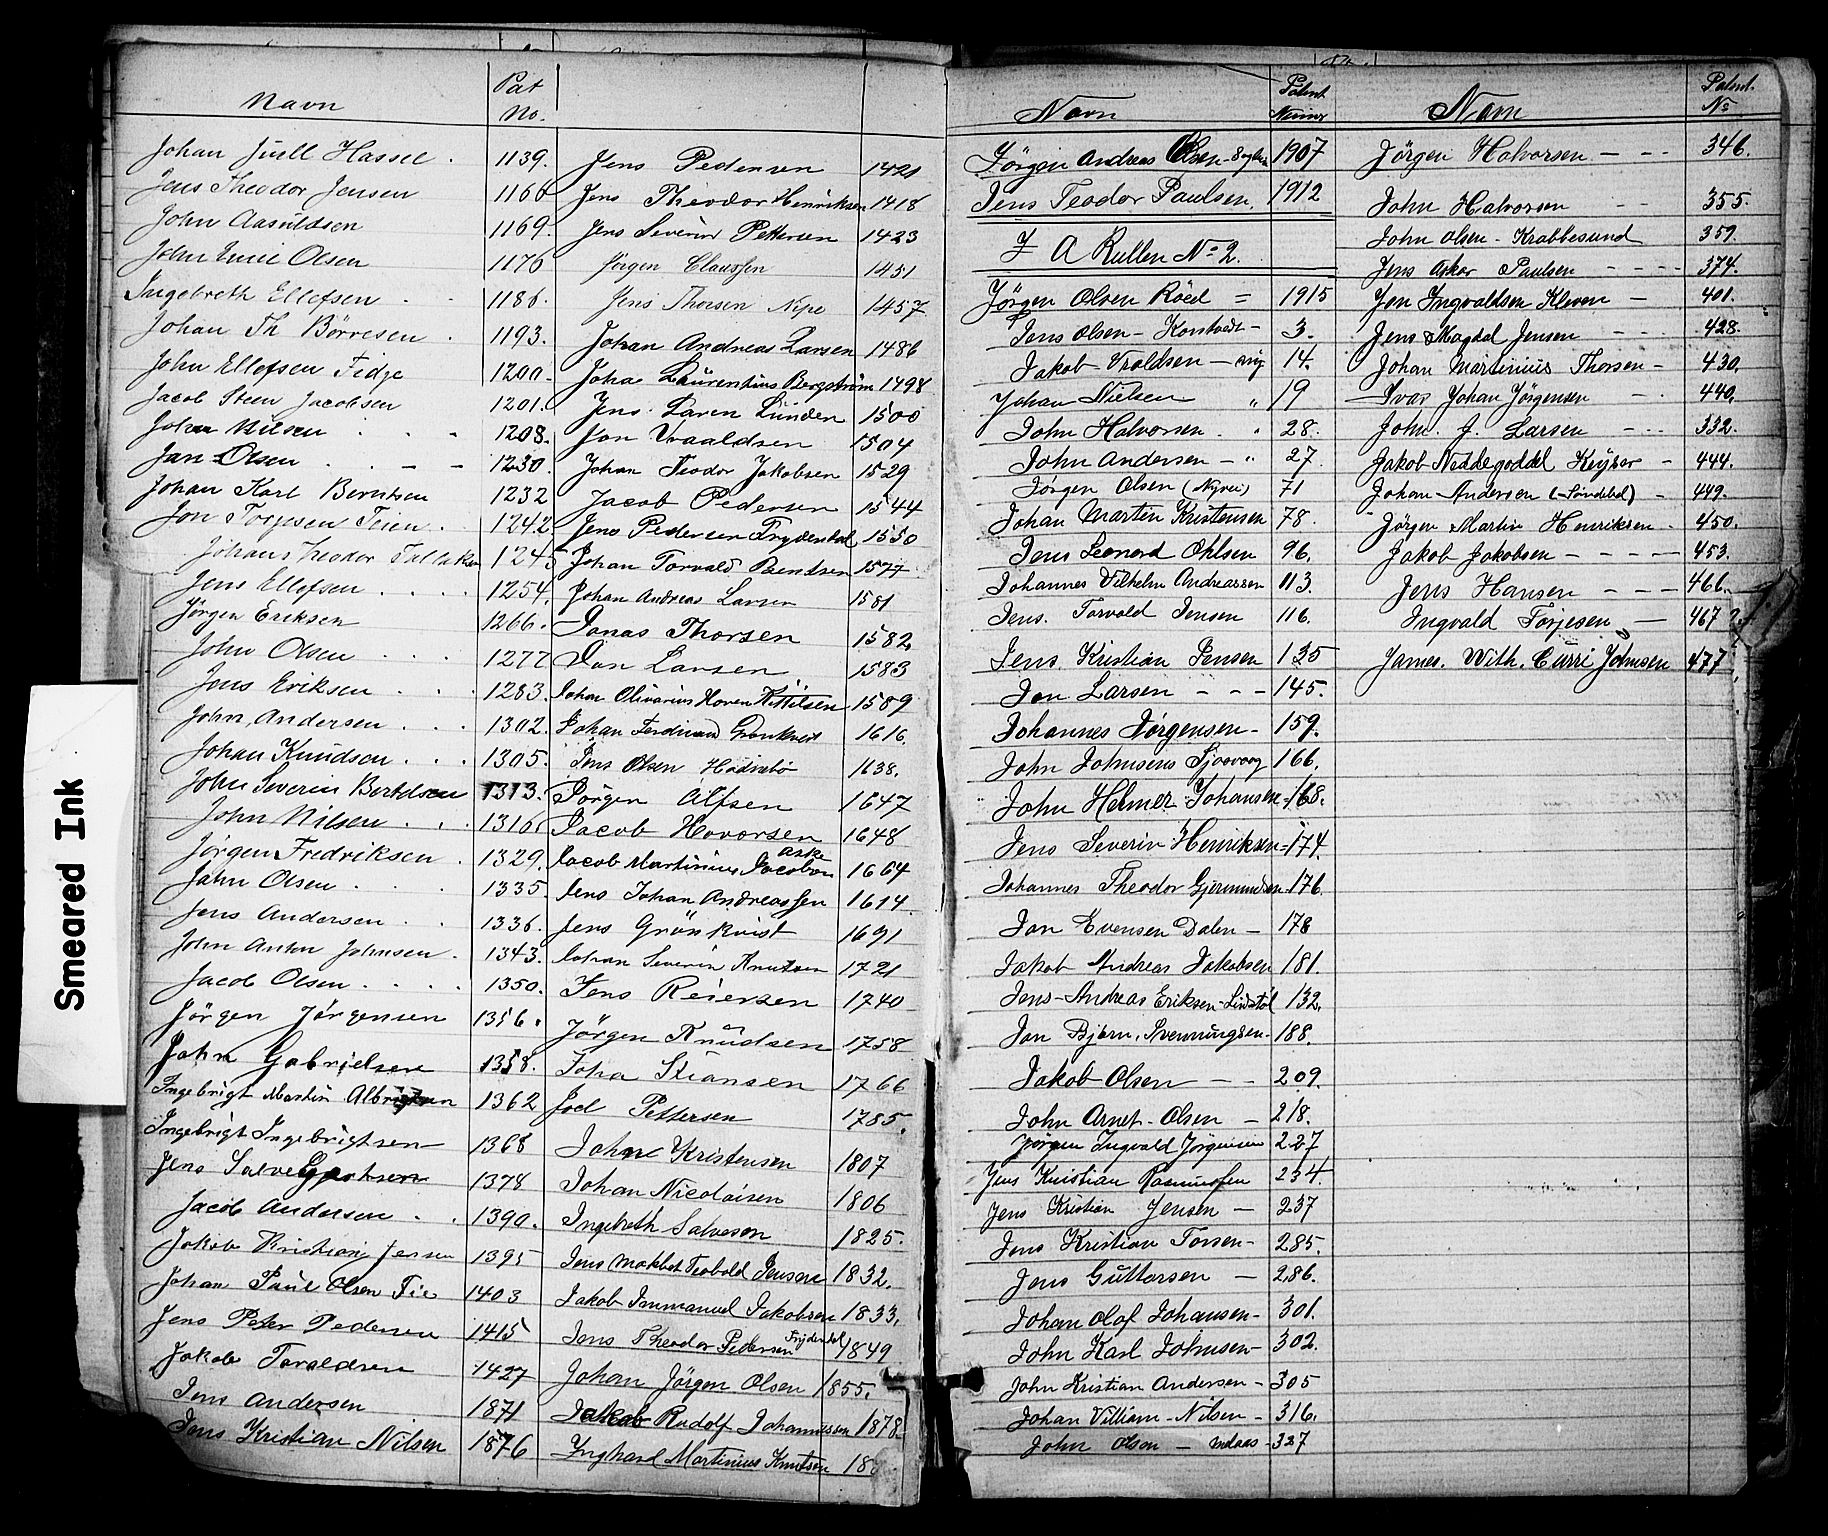 Smeared Ink
Navn Pat No.
Johan Juell Hassel . 1139.
Jens Theodor Jensen 1166
John Aasuldsen 1169.
John Olsen 1176
Ingebreth Ellefsen . . 1186.
Johan Th Börresen . 1193.
John Ellefsen Fidje 1200.
Jacob Steen Jacobsen 1201.
Johan Nilsen . . . 1208.
Jan Olsen . . - - 1230.
Johan Karl Berntsen 1232
Jon Torjesen Teien . 1242.
Johans Theodor 1245
Jens Ellefsen . . . . 1254.
Jørgen Eriksen 1266.
John Olsen . . . 1277
Jens Eriksen . . . 1283.
John Andersen . . . 1302.
Johan Knudsen . . . 1305.
John Severin Bertelsen 1313.
John Nilsen . . . 1316.
Jörgen Fredriksen . 1329.
John Olsen . . . . 1335.
Jens Andersen . . 1336.
John Anton Johnsen . 1343.
Jacob Olsen . . . . 1350.
Jörgen Jörgensen 1356.
John Gabrielsen 1358.
Ingebrigt Martin 1362
Ingebrigt Ingebrigtsen 1368
Jens Salve 1378
Jacob Andersen . . 1390.
Jakob Kristian Jensen 1395
Johan Paul Olsen Fie 1403
Jens Peter Pedersen 1415
Jakob Toraldsen 1427
Jens Andersen 1871
Jens Kristian Nilsen 1876
Jens Pedersen 1421
Jens Theodor Henriksen 1418
Jens Severin Pettersen 1423
Jörgen Claussen 1451
Jens Thorsen Nipe 1457
Johan Andreas Larsen 1486
Joha Laurentius Bergström 1498
Jens Laren Lunden 1500
Jon Vraaldsen 1504
Johan Teodor Jakobsen 1529
Jacob Pedersen 1544
Jens Pedersen Frydendal 1550
Johan Torvald Bendsen 1577
Johan Andreas Larsen 1581
Jonas Thorsen 1582
Jan Larsen 1583
Johan Olivarius Hoven Kittilsen 1589
Johan Ferdinand Grönkvist 1616.
Jens Olsen 1638.
Jörgen Alfsen 1647
Jacob Hovorsen 1648
Jacob Martinius Jacobsen Aske 1664
Jens Johan Andreassen 1614
Jens Grönkvist 1691
Johan Severin Knutsen 1721
Jens Reiersen 1740
Jörgen Knudsen 1758
Joha Stiansen 1766
Joel Pettersen 1785.
Johan Kristensen 1807
Johan Nicolaisen 1806
Ingebreth Salveson 1825.
Jens Teobald Jensen 1832.
Jakob Immanuel Jakobsen 1833.
Jens Theodor Pedersen Frydendal 1849
Johan Jörgen Olsen 1855.
Jakob Rudolf Johannessen 1878
Inghard Martinius Knutsen 18
Navn Patent Numer
Jörgen Andreas Olsen 1907
Jens Teodor Paulsen. 1912
I A Rullen No 2.
Jörgen Olsen Röed = 1915
Jens Olsen - 3.
Jakob Vraldsen - 14.
Johan Nielsen " 19
John Halvorsen . " 28.
John Andersen - " 27.
Jörgen Olsen (Nyvei) 71
Johan Martin Kristensen 78.
Jens Leonard Ohlsen 96.
Johannes Vilhelm Andreassen 113.
Jens. Torvald Jensen 116.
Jens Kristian Jensen 135
Jon Larsen - - - 145.
Johannes Jörgensen - 159.
John Johnsens 166.
" John Helmer Johansen - 168.
Jens Severin Henriksen - 174.
Johannes Theodor Gjermundsen - 176.
Jon Evensen Dalen - 178
Jakob Andreas Jakobsen 181.
Jens Andreas Eriksen - Lindstöl 132.
Jon Bjorn. Svenningsen - 188.
Jakob Olsen - - 209.
John Arnt. Olsen - 218.
Jörgen Ingvald Jørgensen 227
Jens Kristian Rasmussen 234.
Jens Kristian Jensen - 237
Jens Kristian Torsen - 285.
Jens Guttorsen - 286.
Johan Olaf Johansen - 301.
John Karl Johnsen - 302.
John Kristian Andersen - 305
Johan Villiam - Nilsen - 316.
John Olsen - 327
Navn Patent. No
Jørgen Halvorsen - - - 346.
John Halvorsen - - 355.
John Olsen - Krabbesund 359.
Jens Asker Paulsen - - - - 374.
Jon Ingvaldsen Kleven - 401.
Jens Magdal Jensen - - 428.
Johan Martinius Thorsen - 430.
Ivar Johan Jørgensen - . 440.
John. J. Larsen - - - 332.
Jakob Neddegoddel Keyser - 444.
Johan Andersen (Söndebol) - 449.
Jörgen Martin Henriksen . 450.
Jakob Jakobsen - - - - - 453.
Jens Hansen - - - - 466.
Ingvald Torjesen - 467 ?
James. With. Curri Johnsen 477